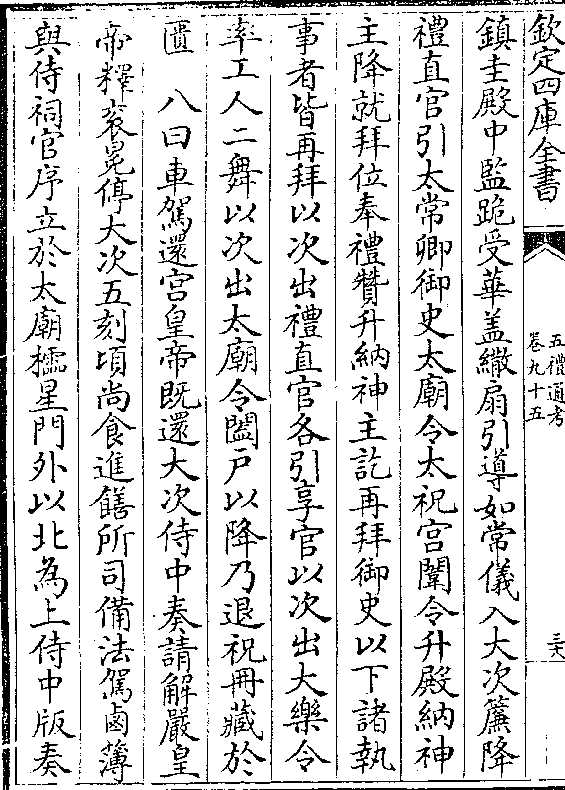 欽定四庫全書
五禮通考
卷九十五
三六
鎮圭殿中監跪受華盖繖扇引導如常儀入大次簾降
禮直官引太常卿御史太廟令太祝宫闈令升殿納神
主降就拜位奉禮贊升納神主訖再拜御史以下諸執
事者皆再拜以次出禮直官各引享官以次出大樂令
率工人二舞以次出太廟令闔户以降乃退祝冊藏於
匱　八曰車駕還宫皇帝既還大次侍中奏請解嚴皇
帝釋衮冕停大次五刻頃尚食進饍所司備法駕鹵薄
與侍祠官序立於太廟櫺星門外以北為上侍中版奏